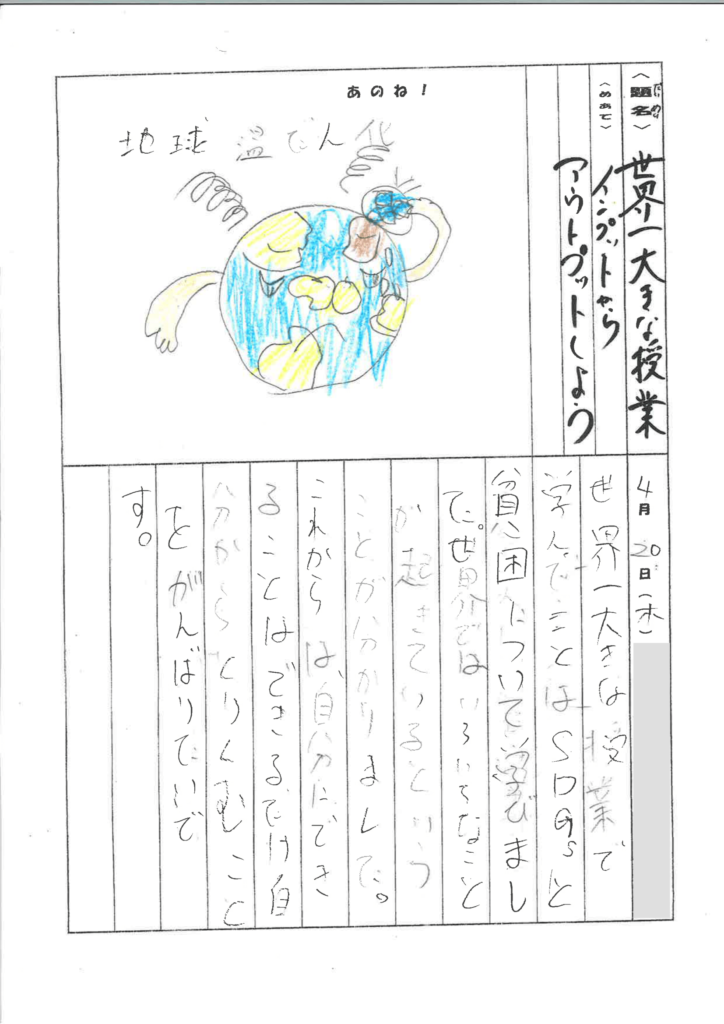 あのね！
地球温だん化
〈題名〉世界一大きな授業
だいめい
〈めあて〉インプットから
アウトプットしよう
4月20日（木）
せ界一大きな授業で
学んでことはSDGsと
貧困について学びまし
た。世界ではいろいろなこと
が起きているという
ことが分かりました。
これからは、自分にでき
ることはできるだけ自
分からとりくむこと
をがんばりたいで
す。